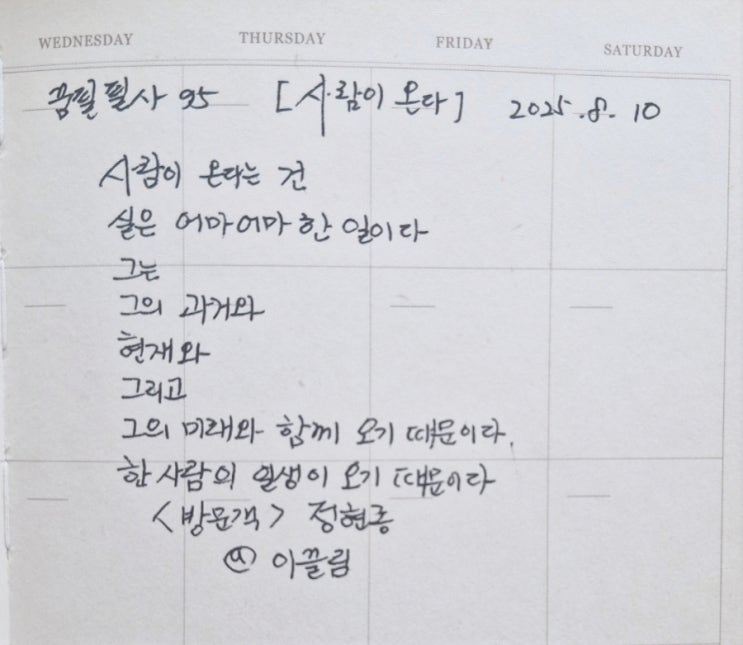 WEDNESDAY THURSDAY FRIDAY SATURDAY
꿈필필사 95 [사람이 온다] 2025.8.10
사람이 온다는 건
실은 어마어마 한 일이다
그는
그의 과거와
현재와
그리고
그의 미래와 함께 오기 때문이다.
한 사람의 일생이 오기 때문이다
<방문객> 정현종
이끌림